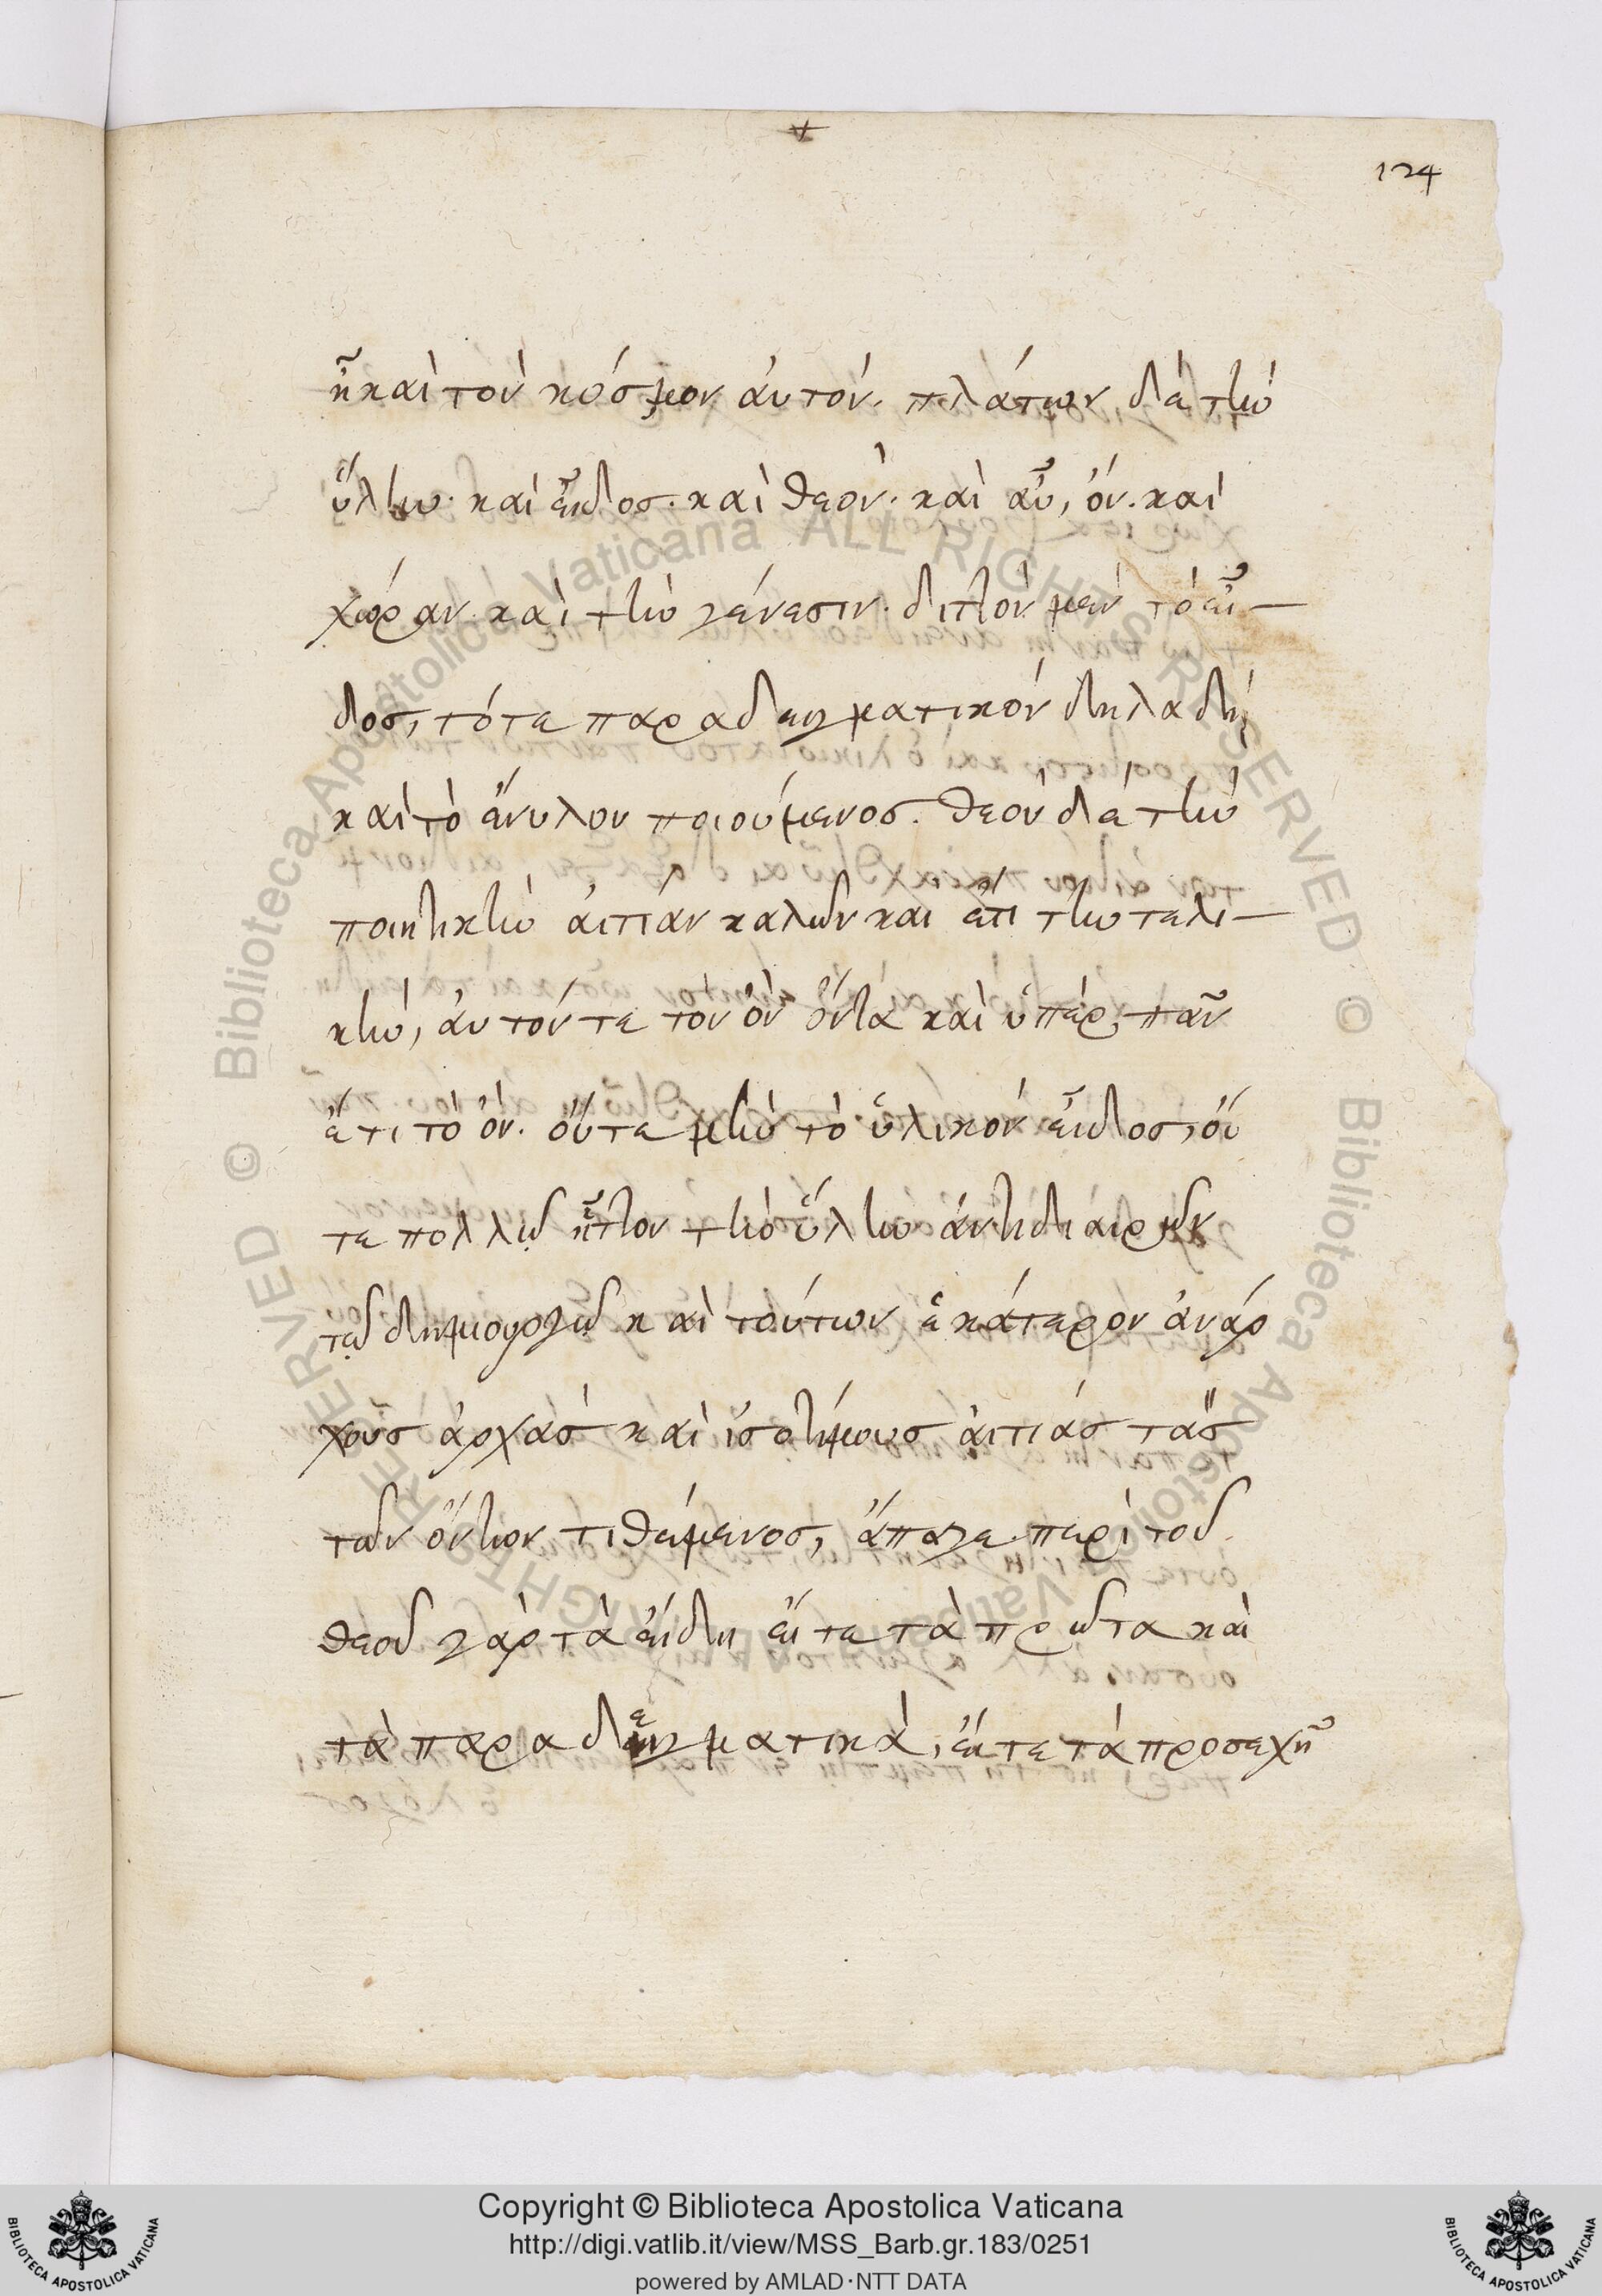 124
ἢ καὶ τὸν κόσμον ἀυτόν. πλάτων δὲ τὴν
ὕλην. καὶ εἶδος. καὶ θεὸν. καὶ αὖ, ὄν. καὶ
χώραν. καὶ τὴν γένεσιν. διττὸν μὲν τὸ εἶ-
δος, τό τε παραδειγματικὸν δηλαδὴ,
καὶ τὸ ἔνυλον ποιούμενος. θεὸν δὲ τὴν
ποιητικὴν ἀιτίαν καλῶν καὶ ἔτι τὴν τελι-
κὴν, ἀυτόν τε τὸν ὂν ὄντα καὶ ὑπὲρ πᾶν
ἔτι τὸ ὄν. ὄυτε μὴν τὸ ὑλικὸν εἶδος, ὄυ
τε πολλῷ ἧττον τὴν ὕλην ἀντιδιαιρῶν
τῷ δημιουργῷ καὶ τούτων ἑκάτερον ἀνάρ
χους ἀρχὰς καὶ ἰσοτίμους ἀιτίας τὰς
τῶν ὄντων τιθέμενος, ἄπαγε. περὶ τοῦ
θεοῦ γὰρ τὰ εἴδη εἴ τε τὰ πρῶτα καὶ
τὰ παραδειγματικὰ, εἴ τε τὰ προσεχῆ
Copyright © Biblioteca Apostolica Vaticana
http://digi.vatlib.it/view/MSS_Barb.gr.183/0251
powered by AMLAD·NTT DATA
BIBLIOTECA APOSTOLICA VATICANA
BIBLIOTECA APOSTOLICA VATICANA
© Biblioteca Apostolica Vaticana ALL RIGHTS RESERVED © Biblioteca Apostolica Vaticana ALL RIGHTS RESERVED